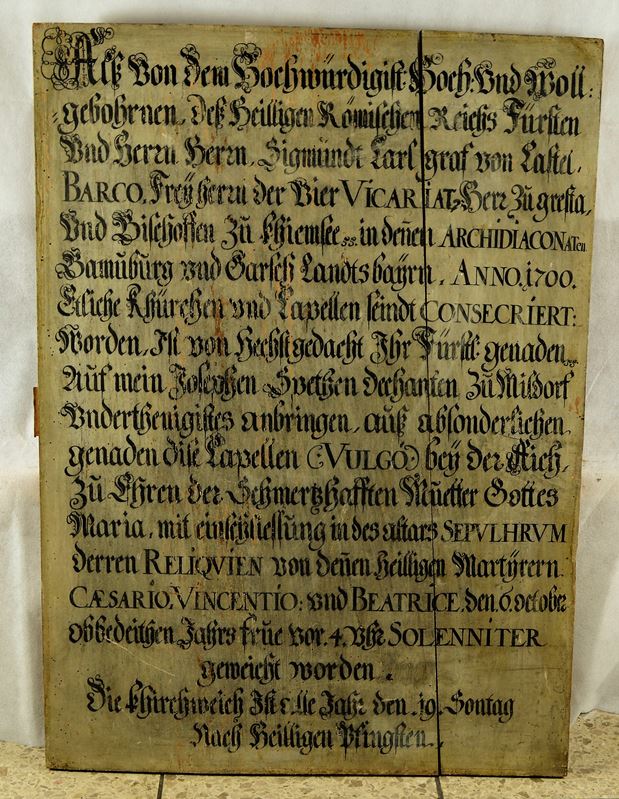 Alß Von dem Hochwürdigist Hoch: Und Woll:
gebohrnen, deß Heilligen Römischen Reichs Fürsten
Und Herrn Herrn, Sigmundt Carl graf von Castel,
BARCO, Freyherrn der Vier VICARIAT, Herr Zu gresta,
Und Bischoffen Zu Khiemsee, in denen ARCHIDIACONATen
Bamuburg vnd Garsch Landts bayrn, ANNO. 1700.
Etliche Khürchen vnd Capellen seindt CONSECRIERT:
Worden, Ist von Hechstgedacht Ihr Fürstl: genaden
Auf mein Josephen Svethen dechanten Zu Mildorf
Vnderthenigistes anbringen, auß absonderlichen
genaden dise Capellen (: VULGO:) bey der Aich,
Zu Ehren der Schmertzhafften Muetter Gottes
Maria, mit einschliessung in des altars SEPVLHRVM
derren RELIQVIEN von denen Heilligen Martÿrern
CÆSARIO, VINCENTIO: vnd BEATRICE, den 6. october
obbedeithen Jahrs frue vor. 4. Vhr SOLENNITER
geweicht worden.
Die Khirchweich Ist alle Jahr den 19. Sontag
Nach Heilligen Pfingsten.